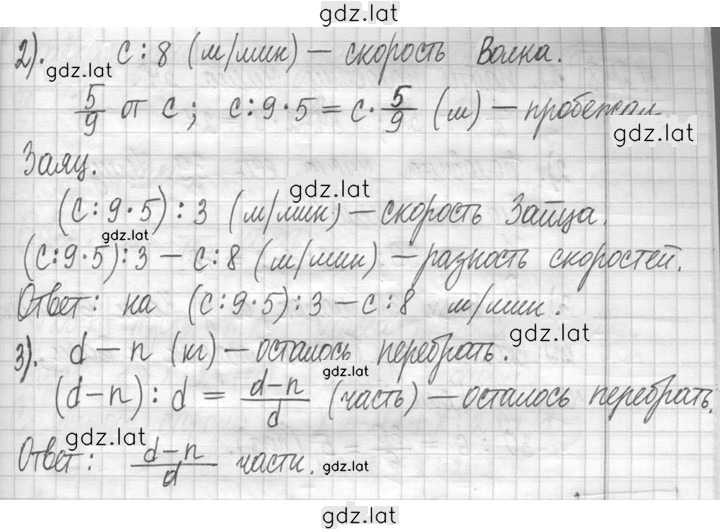 gdz.lat
2). с : 8 (м/мин) – скорость Волка.
gdz.lat
5/9 от с ; с : 9 · 5 = с · 5/9 (м) – пробежал
gdz.lat
Заяц.
gdz.lat
(с : 9 · 5) : 3 (м/мин) – скорость Зайца.
gdz.lat
(с : 9 · 5) : 3 – с : 8 (м/мин) – разность скоростей.
Ответ: на (с : 9 · 5) : 3 – с : 8 м/мин.
gdz.lat
3). d – n (кг) – осталось перебрать.
gdz.lat
(d – n) : d = (d – n)/d (часть) – осталось перебрать.
gdz.lat
Ответ: (d – n)/d части.
gdz.lat
gdz.lat